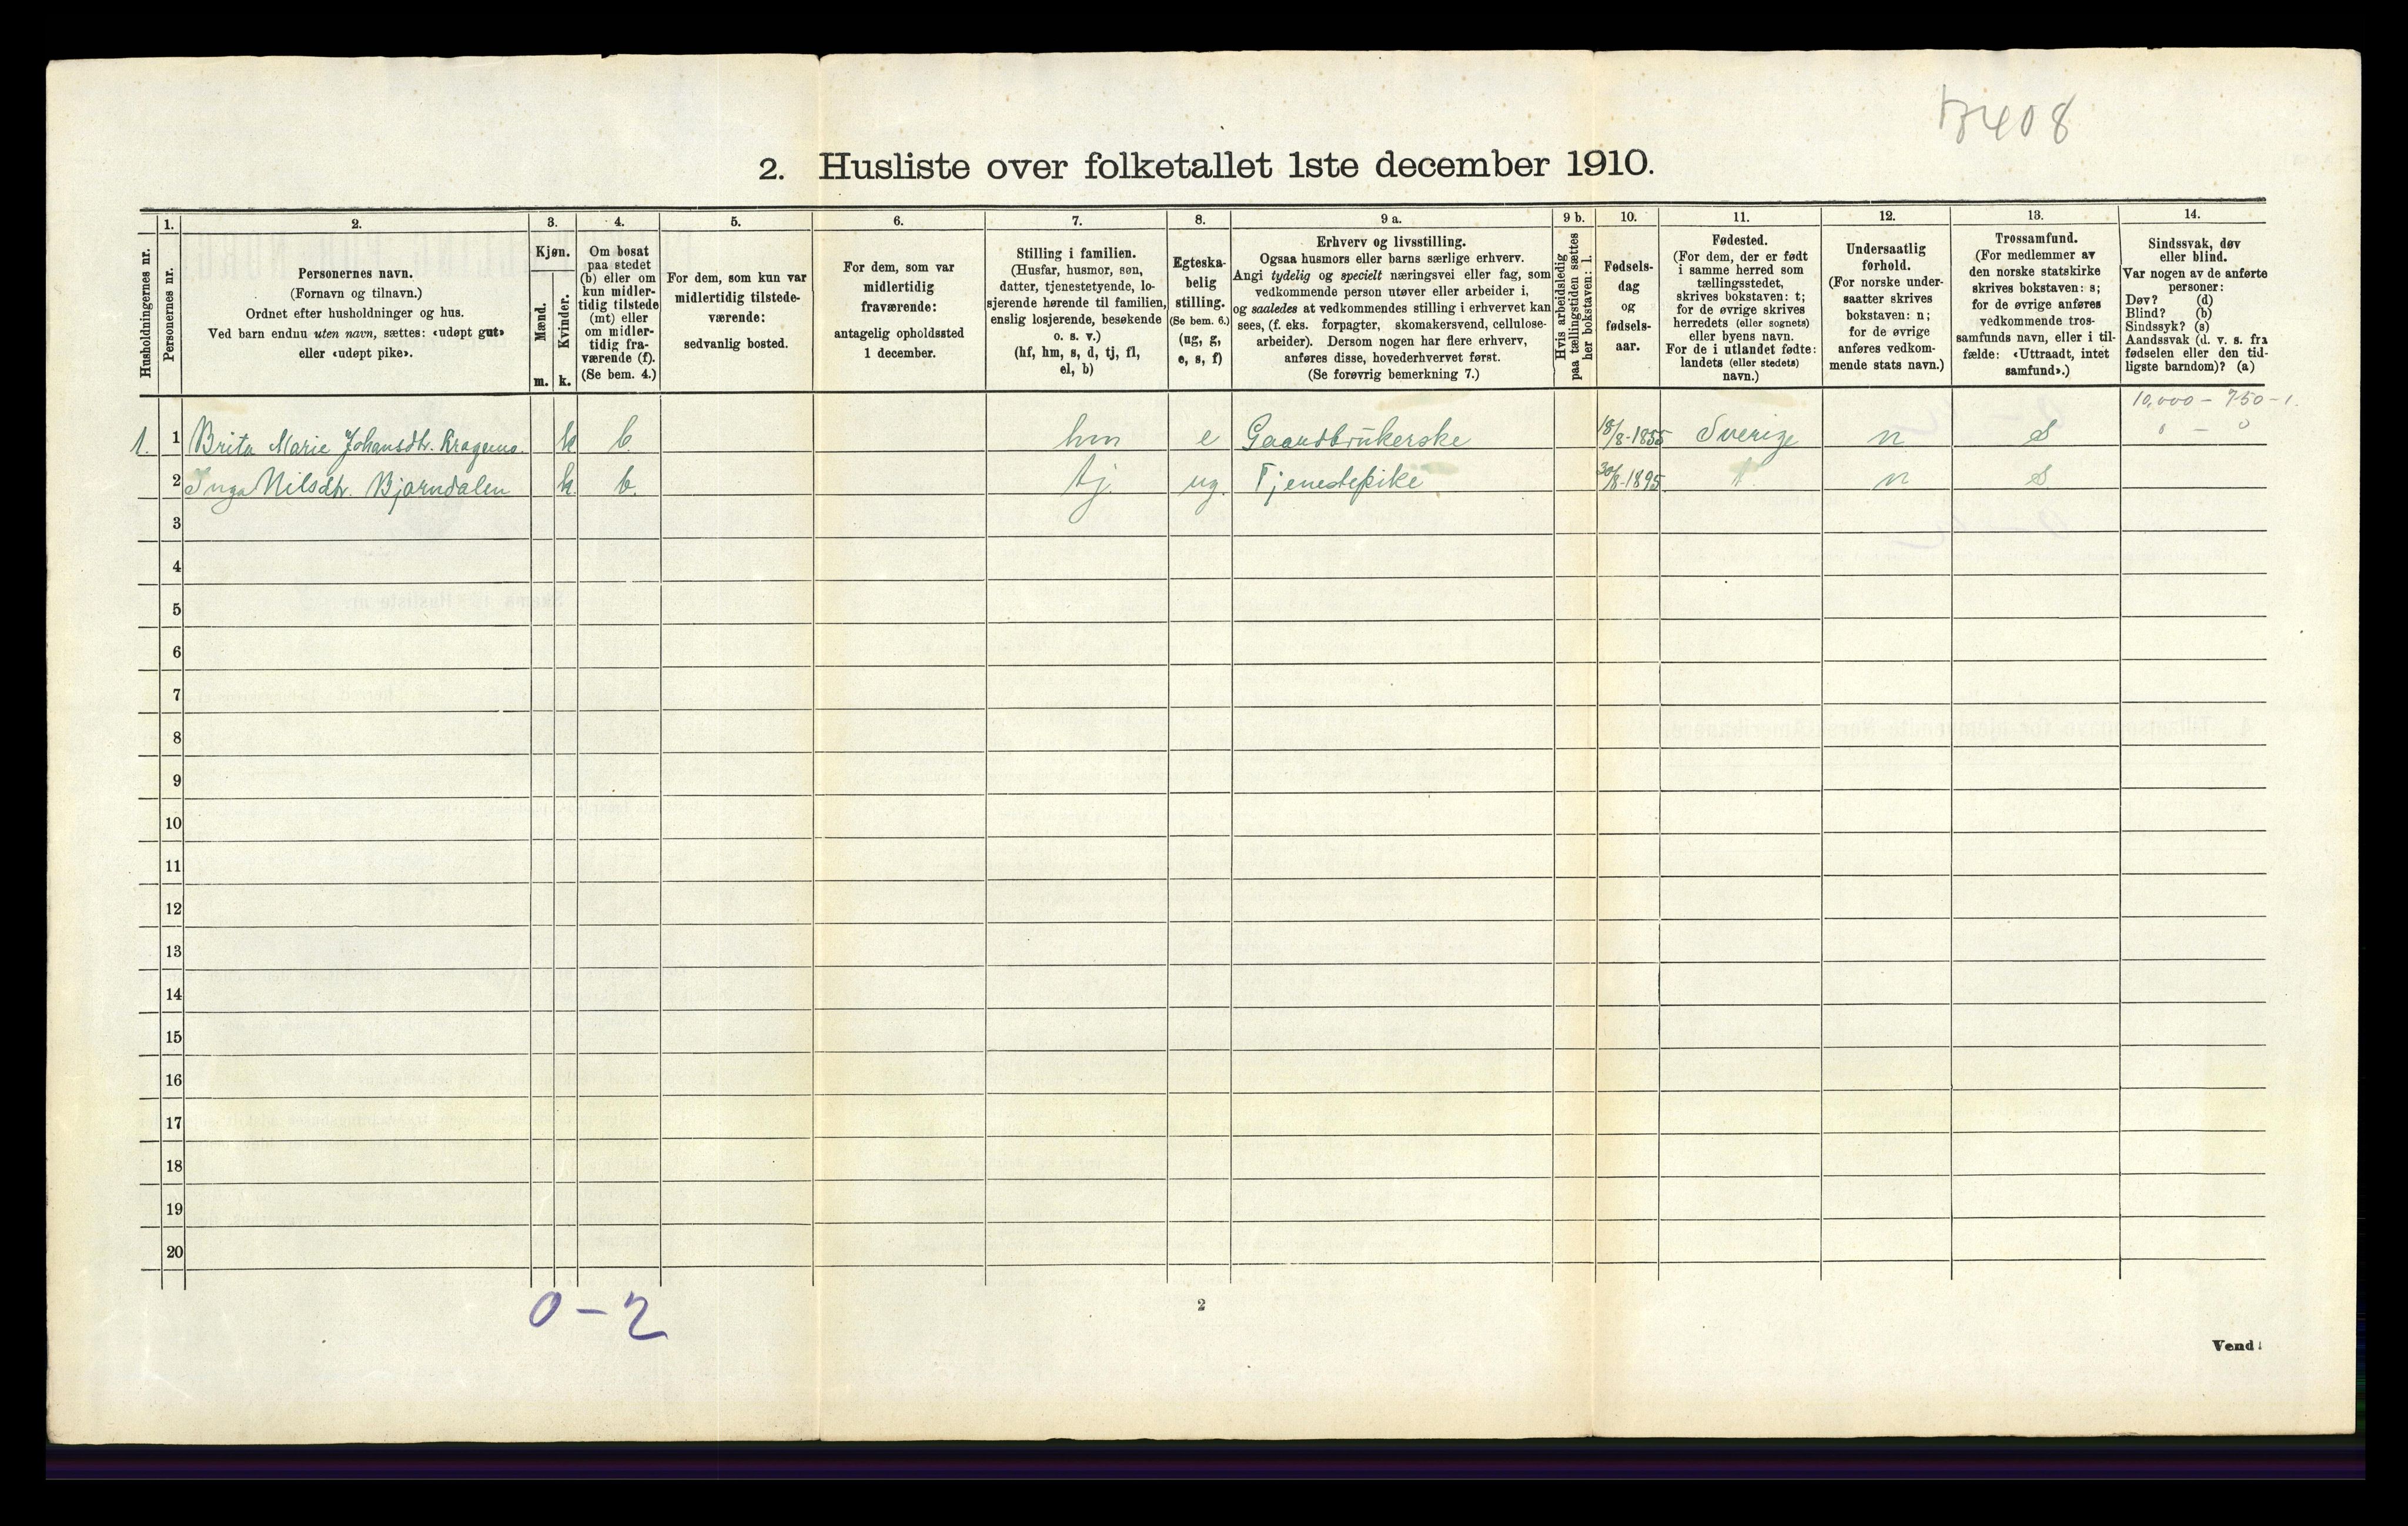 B408
2. Husliste over folketallet 1ste december 1910.
Husholdningernes nr.
1.
Personernes nr.
2.
Personernes navn.
(Fornavn og tilnavn.)
Ordnet efter husholdninger og hus.
Ved barn endnu uten navn, sættes: «udøpt gut»
eller «udøpt pike».
3.
Kjøn.
Mænd.
m.
Kvinder.
k.
4.
Om bosat
paa stedet
(b) eller om
kun midler-
tidig tilstede
(mt) eller
om midler-
tidig fra-
værende (f).
(Se bem. 4.)
5.
For dem, som kun var
midlertidig tilstede-
værende:
sedvanlig bosted.
6.
For dem, som var
midlertidig
fraværende:
antagelig opholdssted
1 december.
7.
Stilling i familien.
(Husfar, husmor, søn,
datter, tjenestetyende, lo-
sjerende hørende til familien,
enslig losjerende, besøkende
o. s. v.)
(hf, hm, s, d, tj, fl,
el, b)
8.
Egteska-
belig
stilling.
(Se bem. 6.)
(ug, g,
e, s, f)
9 a.
Erhverv og livsstilling.
Ogsaa husmors eller barns særlige erhverv.
Angi tydelig og specielt næringsvei eller fag, som
vedkommende person utøver eller arbeider i,
og saaledes at vedkommendes stilling i erhvervet kan
sees, (f. eks. forpagter, skomakersvend, cellulose-
arbeider). Dersom nogen har flere erhverv,
anføres disse, hovederhvervet først.
(Se forøvrig bemerkning 7.)
9 b.
Hvis arbeidsledig
paa tællingstiden sættes
her bokstaven: l.
10.
Fødsels-
dag
og
fødsels-
aar.
11.
Fødested.
(For dem, der er født
i samme herred som
tællingsstedet,
skrives bokstaven: t;
for de øvrige skrives
herredets (eller sognets)
eller byens navn.
For de i utlandet fødte:
landets (eller stedets)
navn.)
12.
Undersaatlig
forhold.
(For norske under-
saatter skrives
bokstaven: n;
for de øvrige
anføres vedkom-
mende stats navn.)
13.
Trossamfund.
(For medlemmer av
den norske statskirke
skrives bokstaven: s;
for de øvrige anføres
vedkommende tros-
samfunds navn, eller i til-
fælde: «Uttraadt, intet
samfund».)
14.
Sindssvak, døv
eller blind.
Var nogen av de anførte
personer:
Døv? (d)
Blind? (b)
Sindssyk? (s)
Aandssvak (d. v. s. fra
fødselen eller den tid-
ligste barndom)? (a)
10,000 - 750 - 1.
0 - 0
1. 1 Brita Marie Johansdtr. k b. hm e Gaardbrukerske 18/8-1855 Sverige n S
2 Inga Nilsdtr. Bjørndalen k b. tj. ug. Tjenestepike 30/8-1895 t. n S
3
4
5
6
7
8
9
10
11
12
13
14
15
16
17
18
19
20
0 - 2
2
Vend!